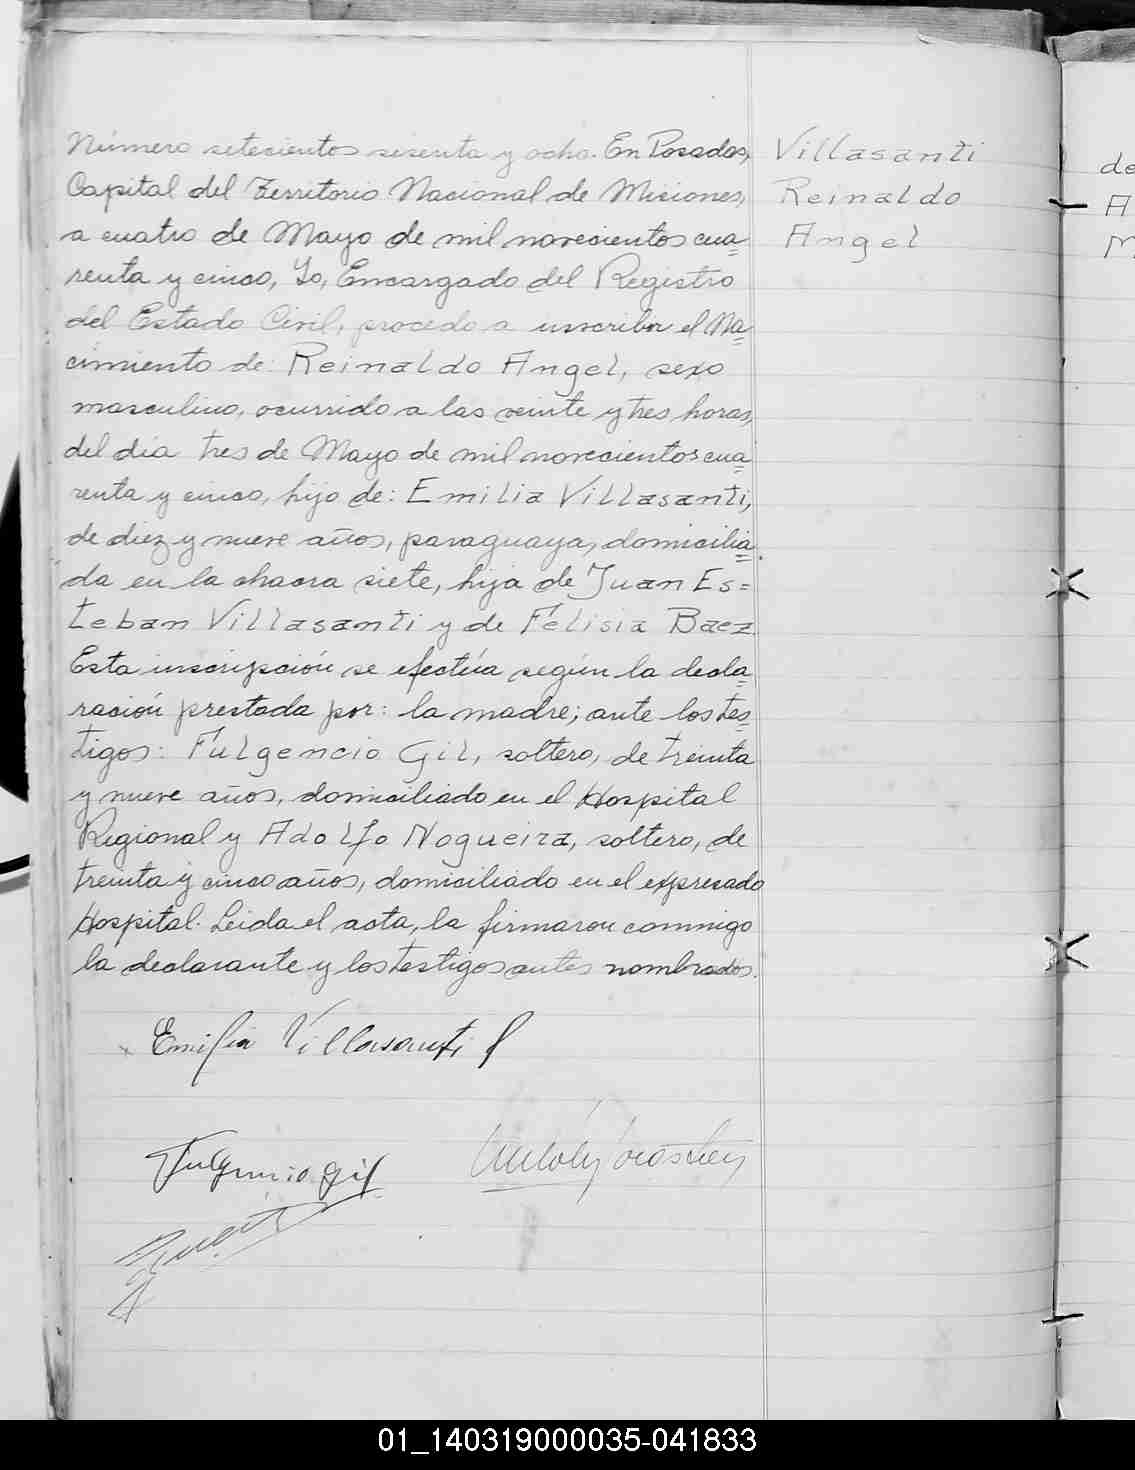 Número setecientos sesenta y ocho. En Posadas,
Capital del Territorio Nacional de Misiones,
a cuatro de Mayo de mil novecientos cua=
renta y cinco, Yo, Encargado del Registro
del Estado Civil, procedo a inscribir el Na=
cimiento de: Reinaldo Angel, sexo
masculino, ocurrido a las veinte y tres horas,
del día tres de Mayo de mil novecientos cua=
renta y cinco, hijo de: Emilia Villasanti,
de diez y nueve años, paraguaya, domicilia=
da en la chacra siete, hija de Juan Es=
teban Villasanti y de Felisia Baez
Esta inscripción se efectúa según la decla=
ración prestada por: la madre; ante los tes=
tigos: Fulgencio Gil, soltero, de treinta
y nueve años, domiciliado en el Hospital
Regional y Adolfo Nogueira, soltero, de
treinta y cinco años, domiciliado en el expresado
Hospital. Leida el acta, la firmaron conmigo
la declarante y los testigos antes nombrados.
Villasanti
Reinaldo
Angel
Emilia Villasanti
Fulgencio Gil
de
A
M
01_140319000035-041833